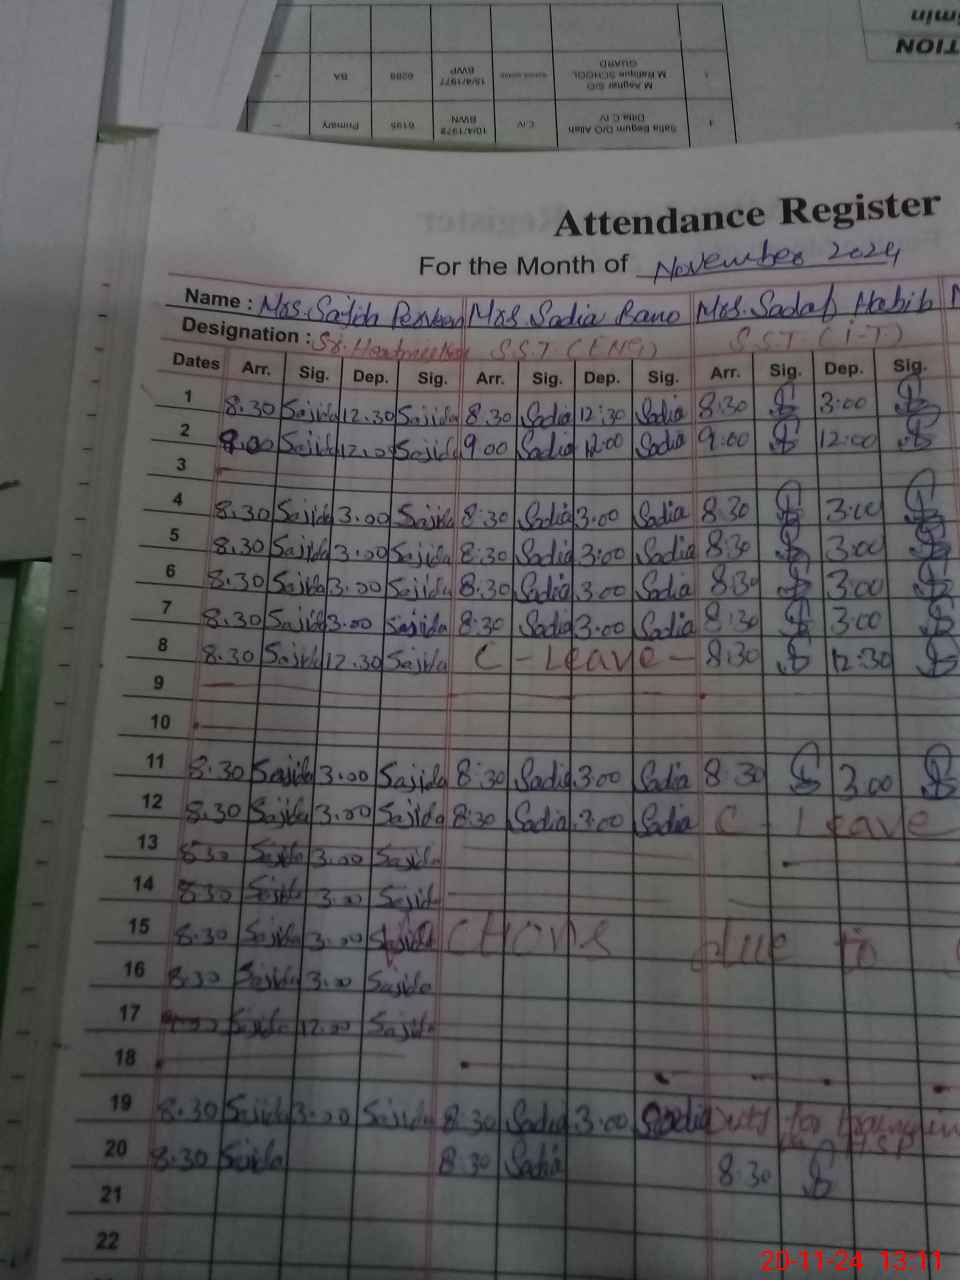 Attendance Register
For the Month of November 2024
Name : Mrs. Sajida Perveen Mrs. Sadia Bano Mrs. Sadaf Habib
Designation : Sr. Headmistress S.S.T (ENG) S.S.T (I-T)
Dates Arr. Sig. Dep. Sig. Arr. Sig. Dep. Sig. Arr. Sig. Dep. Sig.
1 8.30 Sajida 12.30 Sajida 8.30 Sadia 12:30 Sadia 8:30 3:00
2 Sajida Sajida 9 00 Sadia 12:00 Sadia 9:00 12:00
3
4 8.30 Sajida 3.00 Sajida 8:30 Sadia 3:00 Sadia 8:30 3:00
5 8.30 Sajida 3.00 Sajida 8:30 Sadia 3:00 Sadia 8:30 3:00
6 8.30 Sajida 3.00 Sajida 8.30 Sadia 3.00 Sadia 8:30 3:00
7 8.30 Sajida 3.00 Sajida 8:30 Sadia 3.00 Sadia 8:30 3:00
8 8.30 Sajida 12.30 Sajida C - Leave - 8:30 12:30
9
10
11 8.30 Sajida 3.00 Sajida 8:30 Sadia 3.00 Sadia 8 30 3.00
12 8.30 Sajida 3.00 Sajida 8:30 Sadia 3:00 Sadia C - Leave
13 8 30 Sajida 3.00 Sajida
14 8 30 Sajida 3.00 Sajida
15 8.30 Sajida 3.00 Sajida due to
16 8.30 Sajida 3.00 Sajida
17 Sajida 12.00 Sajida
18
19 8.30 Sajida 3.00 Sajida 8:30 Sadia 3.00 Sadia for
20 8.30 Sajida 8:30 Sadia 8:30
21
22
20-11-24 13:11